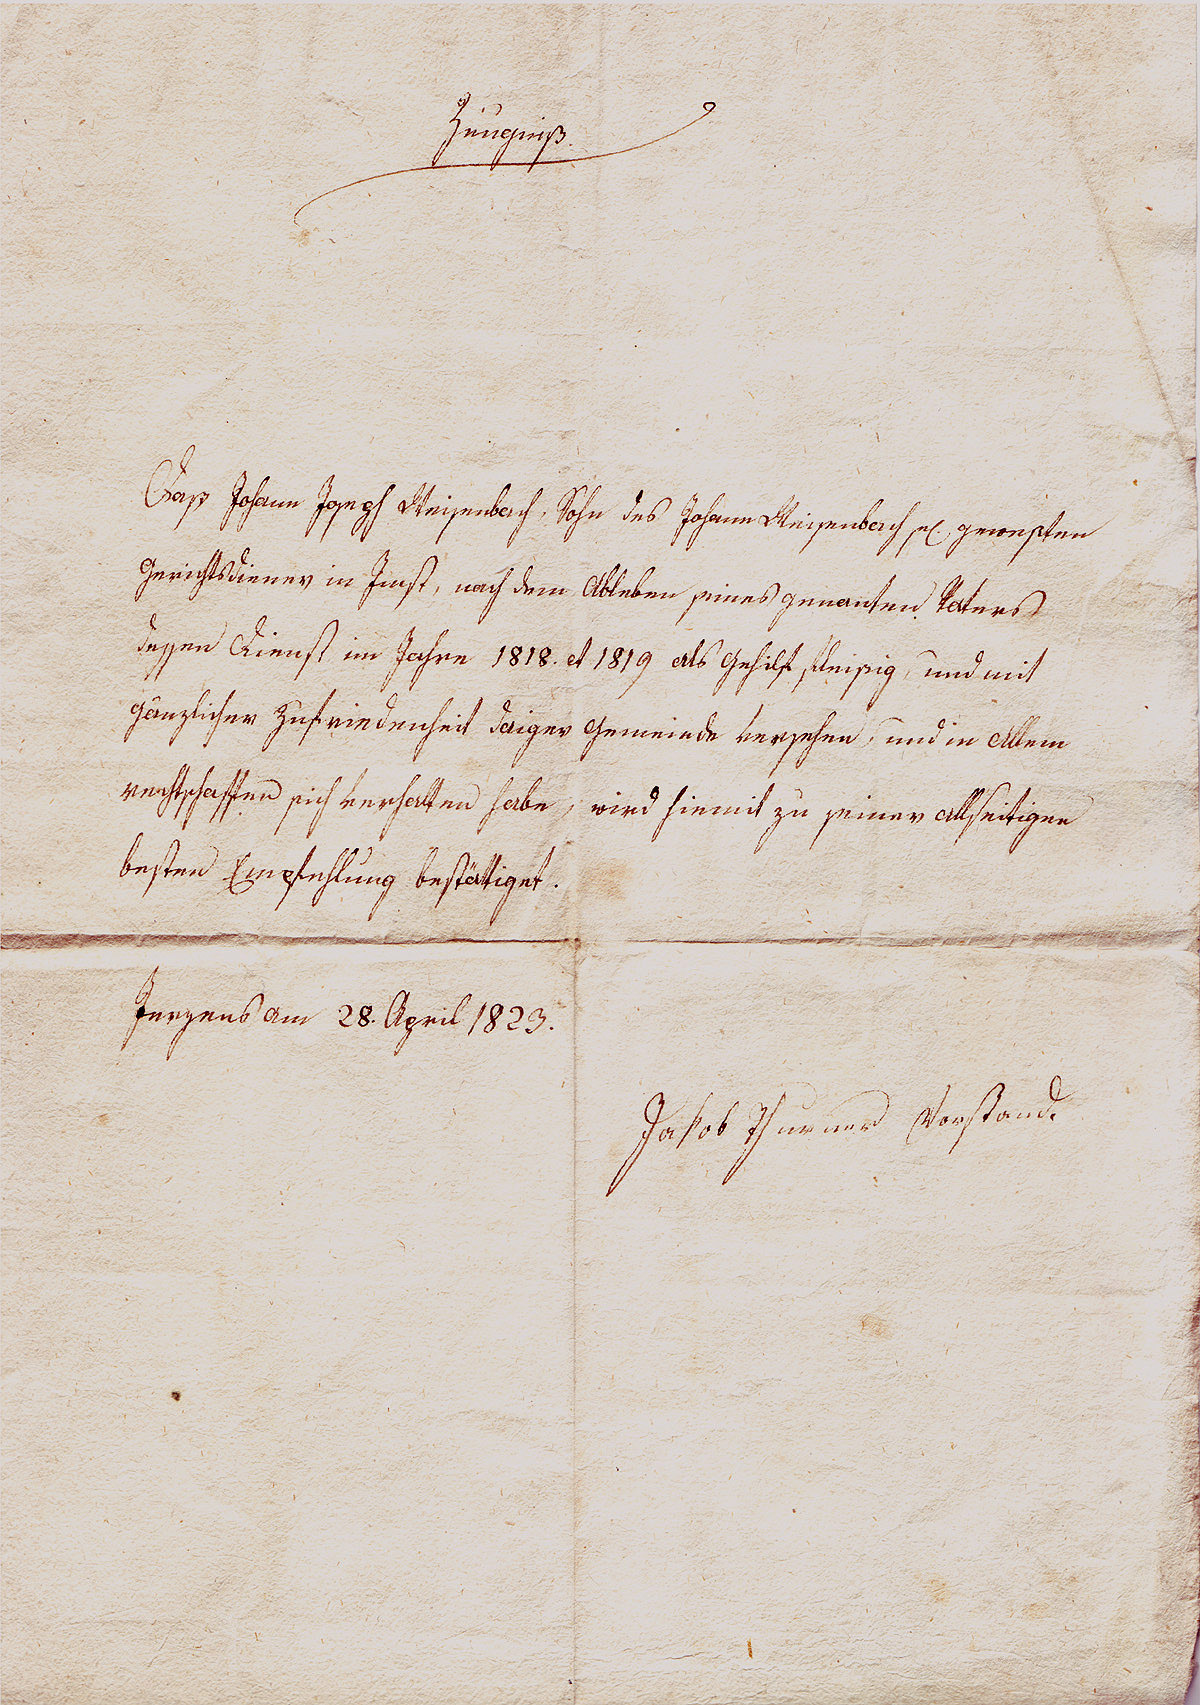 Zeugniß.
Daß Johann Joseph Reisenbach, Sohn des Johann Reisenbach sel. gewesten
Gerichtsdiener in Imst, nach dem Ableben seines genanten Vaters
dessen Dienst im Jahre 1818. et 1819 als Gehilf fleisig, und mit
gänzlicher Zufriedenheit daiger Gemeinde versehen, und in Allem
rechtschaffen sich verhalten habe, wird hiemit zu seiner allseitigen
besten Empfehlung bestättiget.
Jerzens am 28. April 1823.
Jakob Thurner Vorstand.